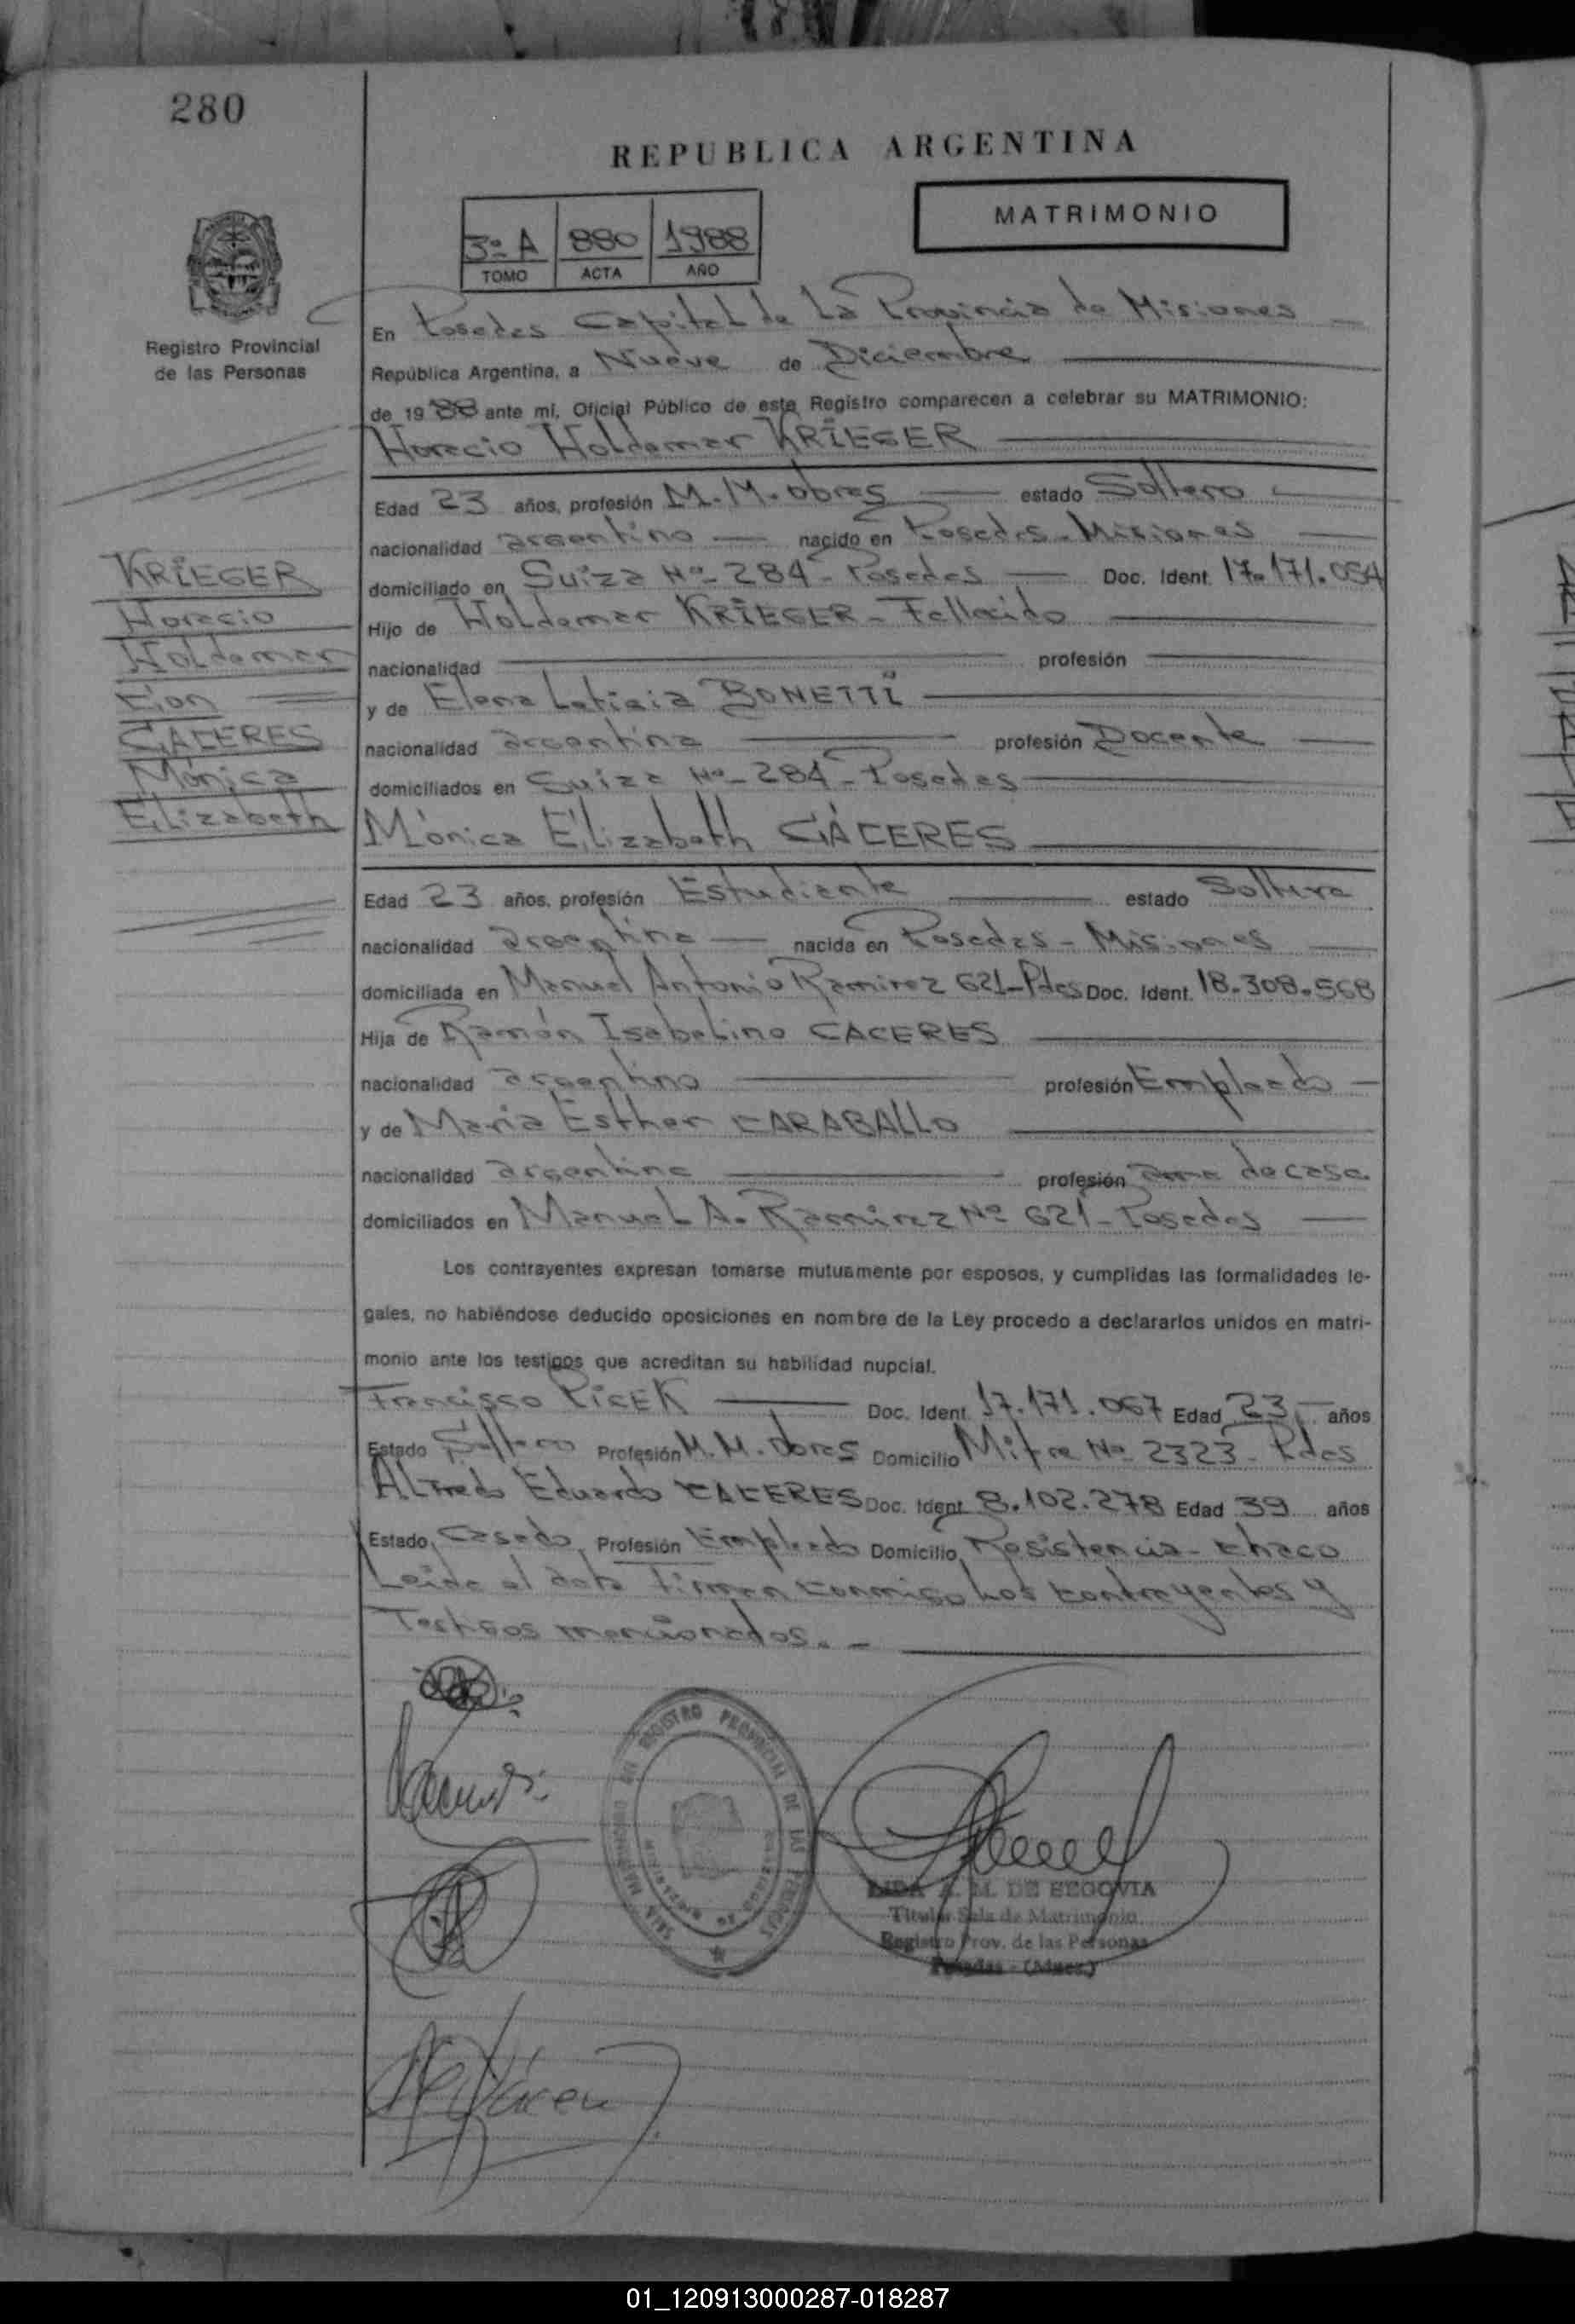 280
REPUBLICA ARGENTINA
MATRIMONIO
3º A 880 1988
TOMO ACTA AÑO
Registro Provincial
de las Personas
En Posadas Capital de La Provincia de Misiones
República Argentina, a Nueve de Diciembre
de 1988 ante mí, Oficial Público de este Registro comparecen a celebrar su MATRIMONIO:
Horacio Holdemar KRIEGER
Edad 23 años, profesión M.M. obras estado Soltero
nacionalidad argentino nacido en Posadas - Misiones
domiciliado en Suiza Nº 284 - Posadas Doc. Ident. 17.171.054
Hijo de Holdemar KRIEGER - Fallecido
nacionalidad profesión
y de Elena Leticia BONETTI
nacionalidad argentina profesión Docente
domiciliados en Suiza Nº 284 - Posadas
KRIEGER
Horacio
Holdemar
Con
CACERES
Mónica
Elizabeth
Mónica Elizabeth CÁCERES
Edad 23 años, profesión Estudiante estado Soltera
nacionalidad argentina nacida en Posadas - Misiones
domiciliada en Manuel Antonio Ramirez 621 - Pdas Doc. Ident. 18.308.568
Hija de Ramón Isabelino CACERES
nacionalidad argentino profesión Empleado
y de Maria Esther CARABALLO
nacionalidad argentina profesión ama de casa
domiciliados en Manuel A. Ramirez Nº 621 - Posadas
Los contrayentes expresan tomarse mutuamente por esposos, y cumplidas las formalidades le-
gales, no habiéndose deducido oposiciones en nombre de la Ley procedo a declararlos unidos en matri-
monio ante los testigos que acreditan su habilidad nupcial.
Francisco PICEK Doc. Ident. 17.171.067 Edad 23 años
Estado Soltero Profesión M.M. Obras Domicilio Mitre Nº 2323 - Pdas
Alfredo Eduardo CACERES Doc. Ident. 8.102.278 Edad 39 años
Estado Casado Profesión Empleado Domicilio Resistencia - Chaco
Leida el acta Firman conmigo Los contrayentes y
Testigos mencionados. -
REGISTRO PROVINCIAL DE LAS PERSONAS
LIDA A. M. DE SEGOVIA
Titular Sala de Matrimonio
Registro Prov. de las Personas
Posadas - (Mnes.)
01_120913000287-018287